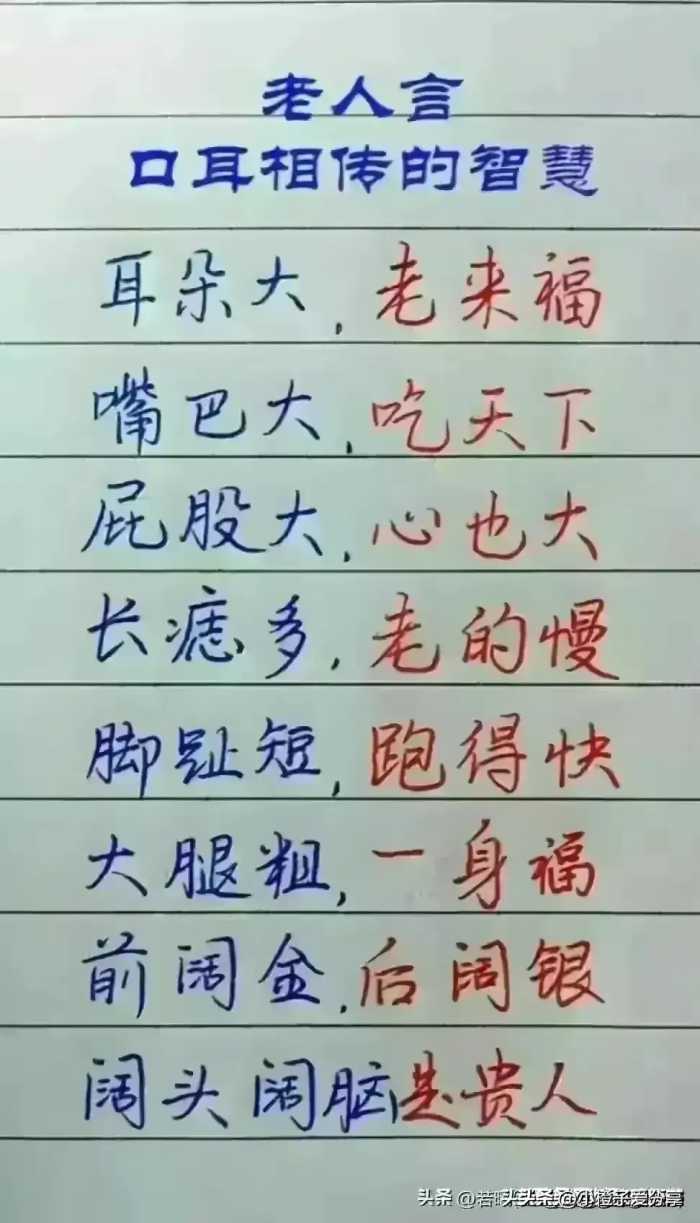 老人言
口耳相传的智慧
耳朵大,老来福
嘴巴大,吃天下
屁股大,心也大
长痣多,老的慢
脚趾短,跑得快
大腿粗,一身福
前阔金,后阔银
阔头阔脑是贵人
头条